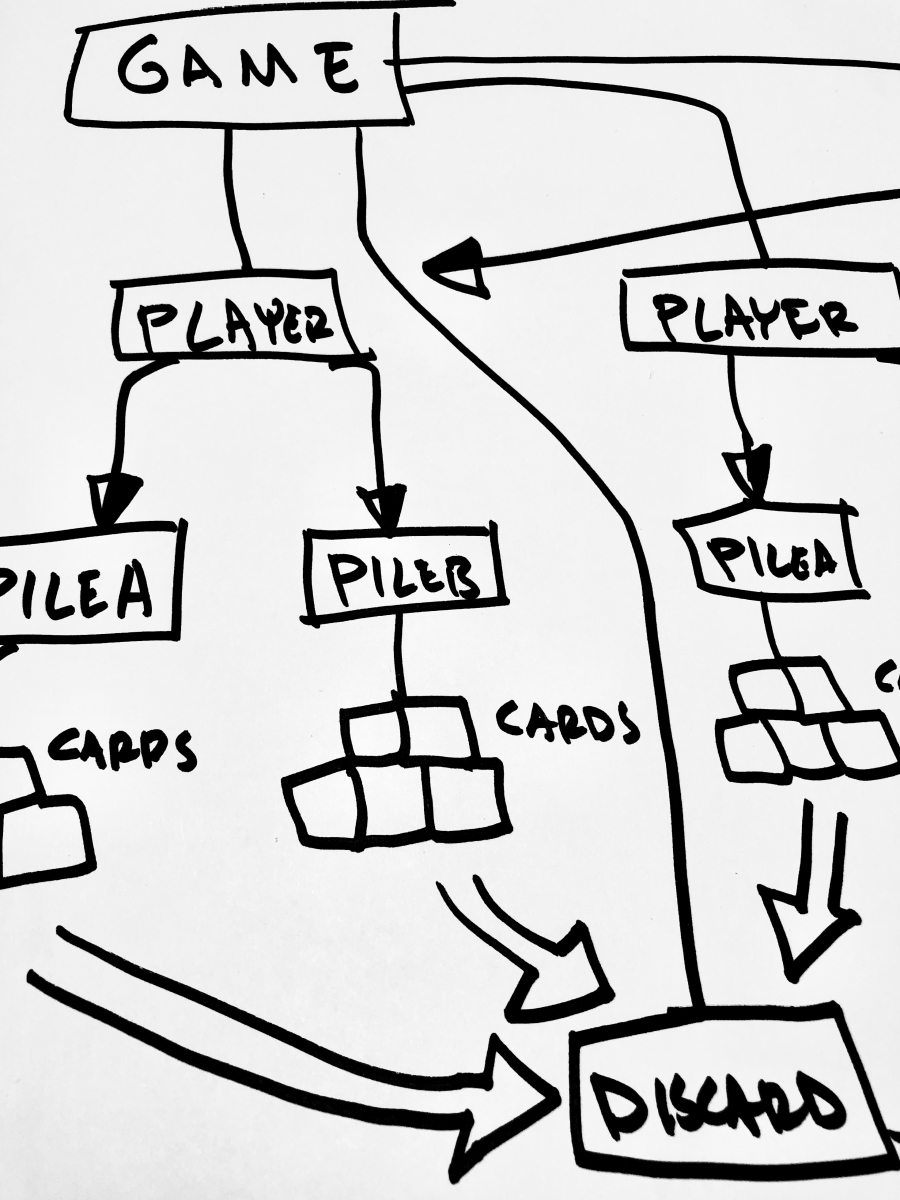 GAME
PLAYER
PLAYER
PILEA
PILEB
PILEA
CARDS
CARDS
DISCARD